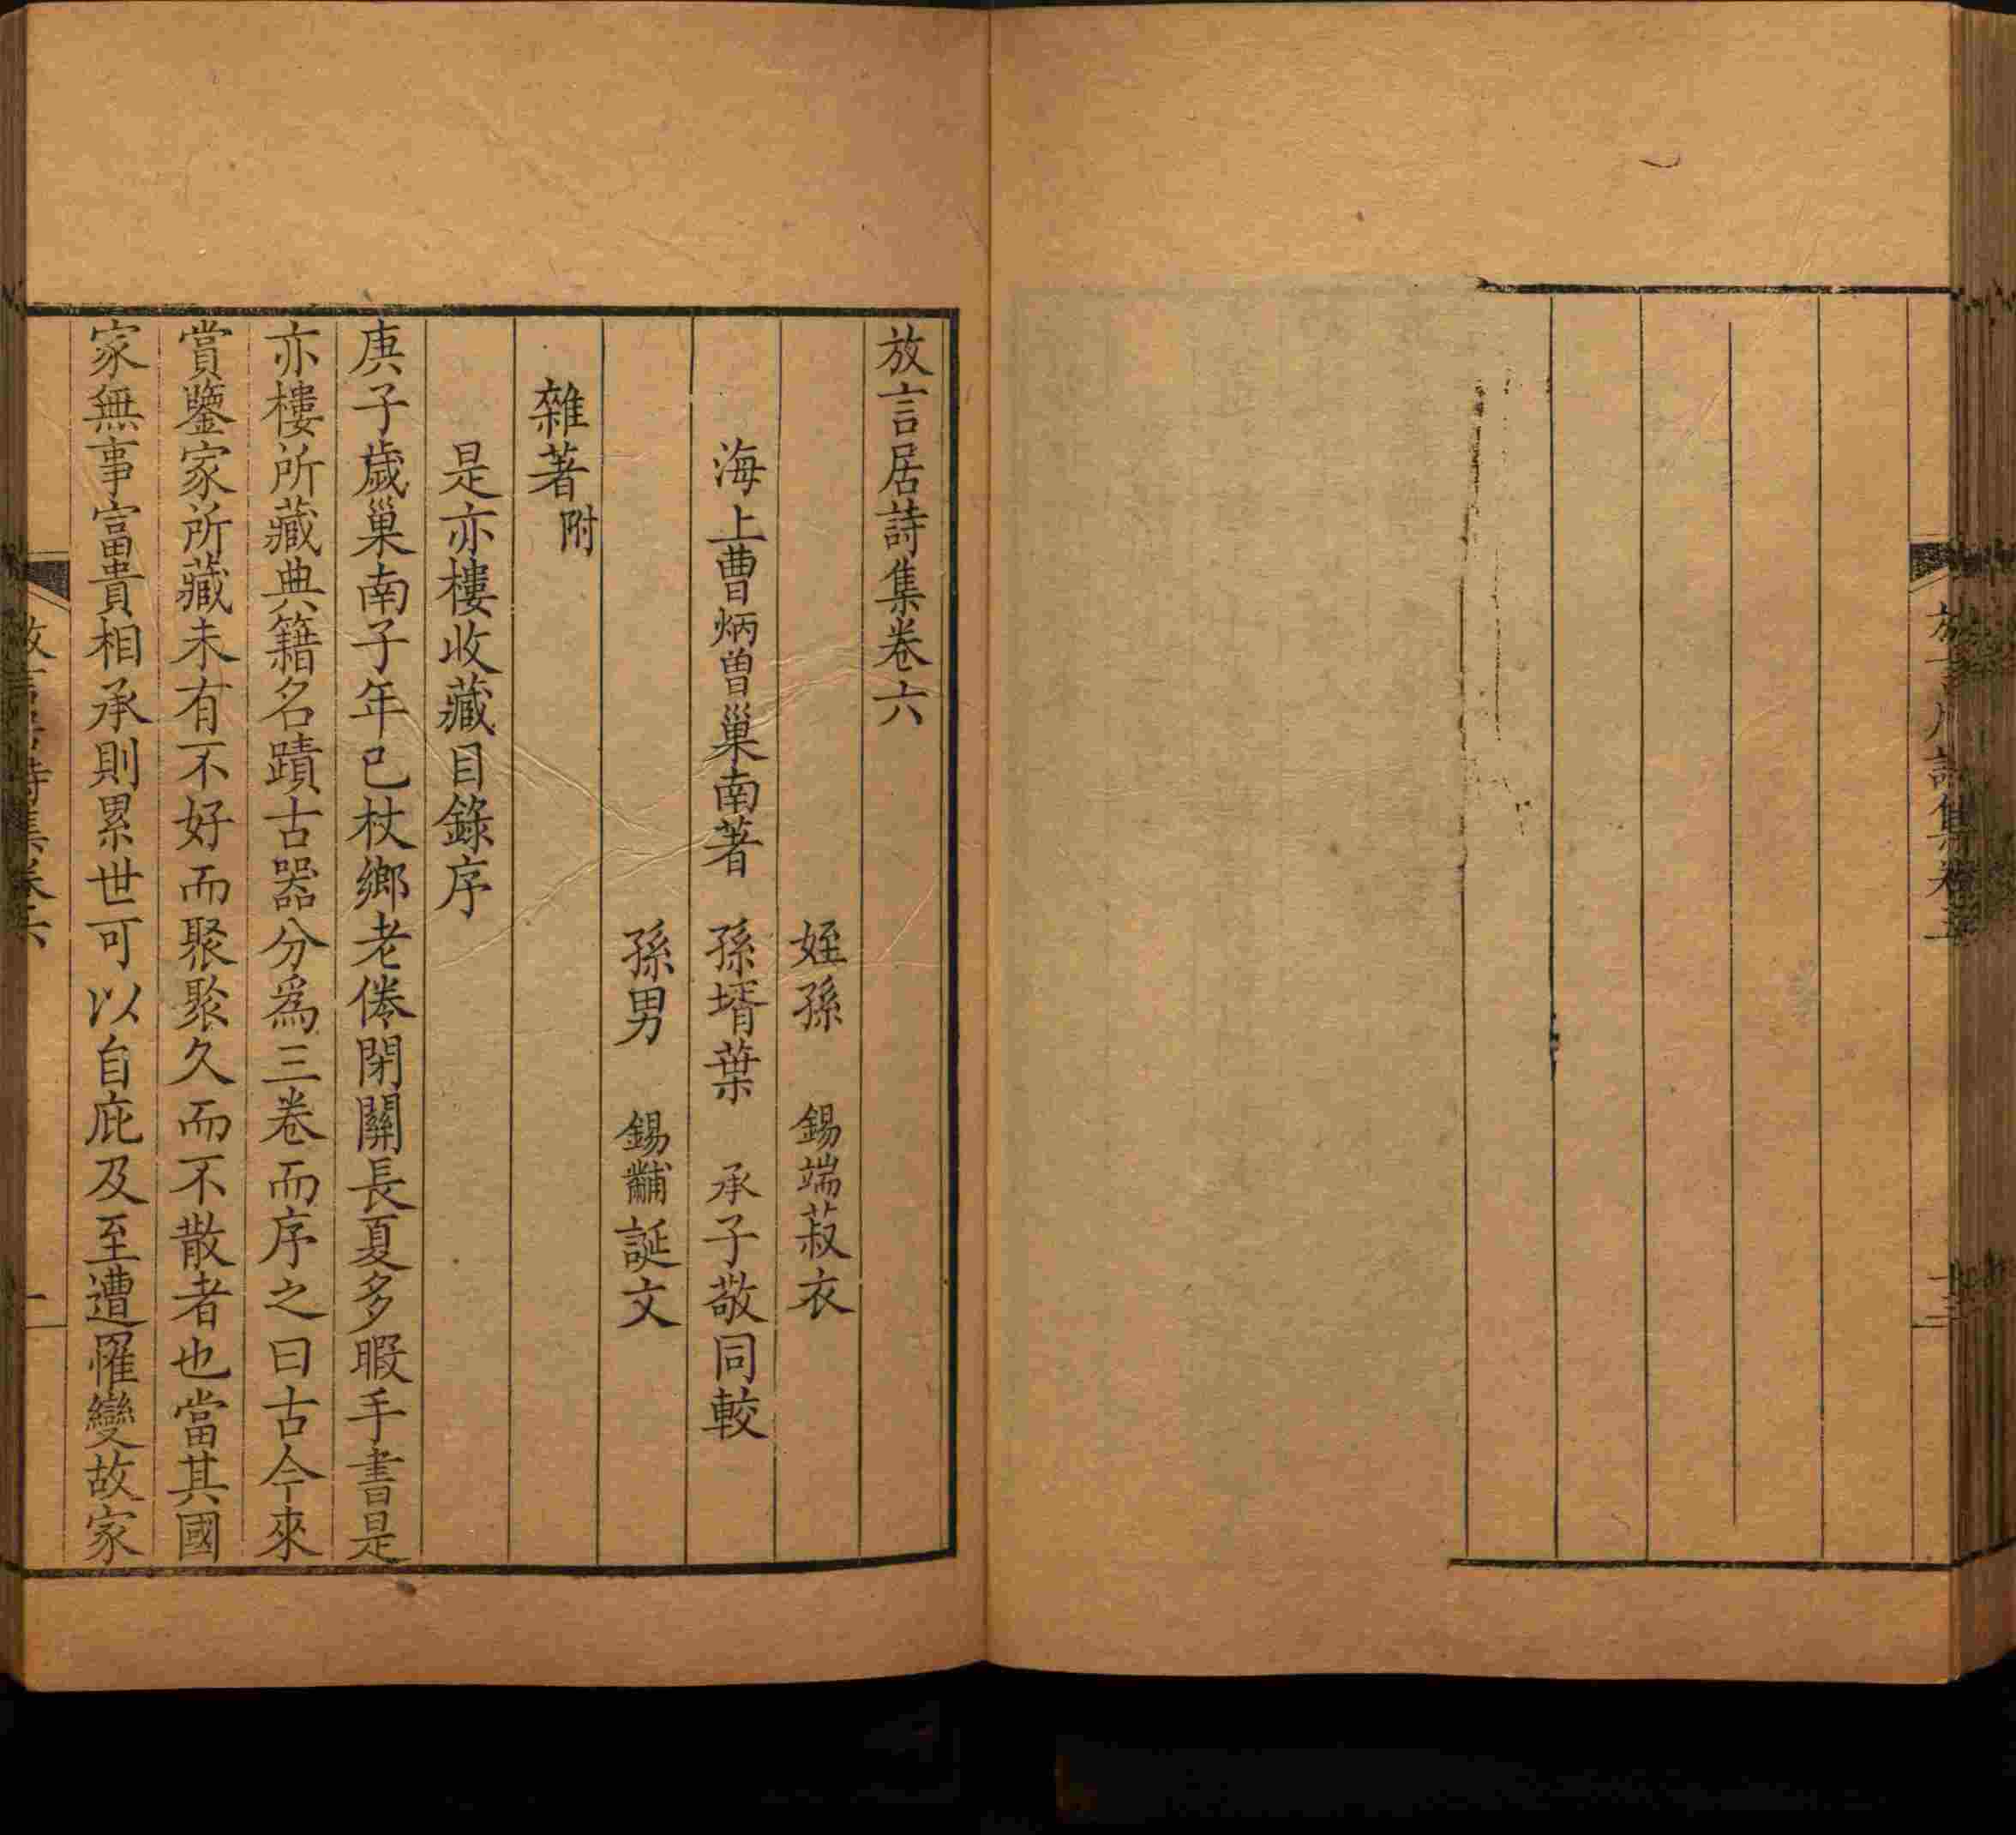 放言居詩集卷五
十三
放言居詩集卷六
姪孫 錫端菽衣
海上曹炳曾巢南著 孫壻葉 承子敬同較
孫男 錫黼誕文
雜著附
是亦樓收藏目錄序
庚子歲巢南子年已杖鄉老倦閉關長夏多暇手書是
亦樓所藏典籍名蹟古器分為三卷而序之曰古今來
賞鑒家所藏未有不好而聚聚久而不散者也當其國
家無事富貴相承則累世可以自庇及至遭罹變故家
放言居詩集卷六
一